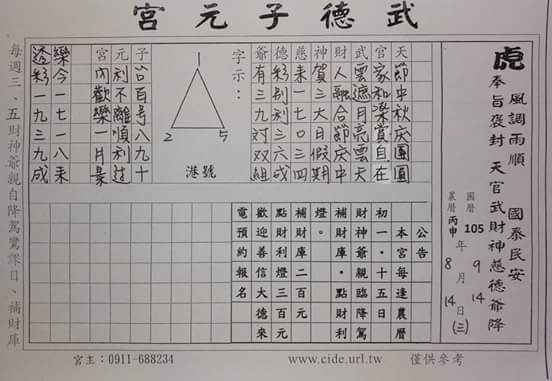 武德子元宮
虎
風調雨順 國泰民安
奉旨褒封 天官武財神慈德爺降
國曆 105年9月14日(三)
農曆 丙申 8 14
天節中秋庆團圓
官家和榮賞自在
武雲遮月亮雲天
財人融合節庆中
神賀三大日假期
慈來一七0三四
德彩別利三六成
爺有三九对双組
字示：
1
2 5
港號
子公百号八九十
元利不離順利过
宮內歡樂一片景
樂今一七一八來
透彩一九三九成
公告
本宮每逢農曆
初一．十五日
財神爺親臨降駕
補財庫．點財利
燈。
補財庫二百元
點財利燈三百元
歡迎善信大德來
電預約報名
每週三、五財神爺親自降駕鸞課目、補財庫
宮主：0911-688234 www.cide.url.tw 僅供參考